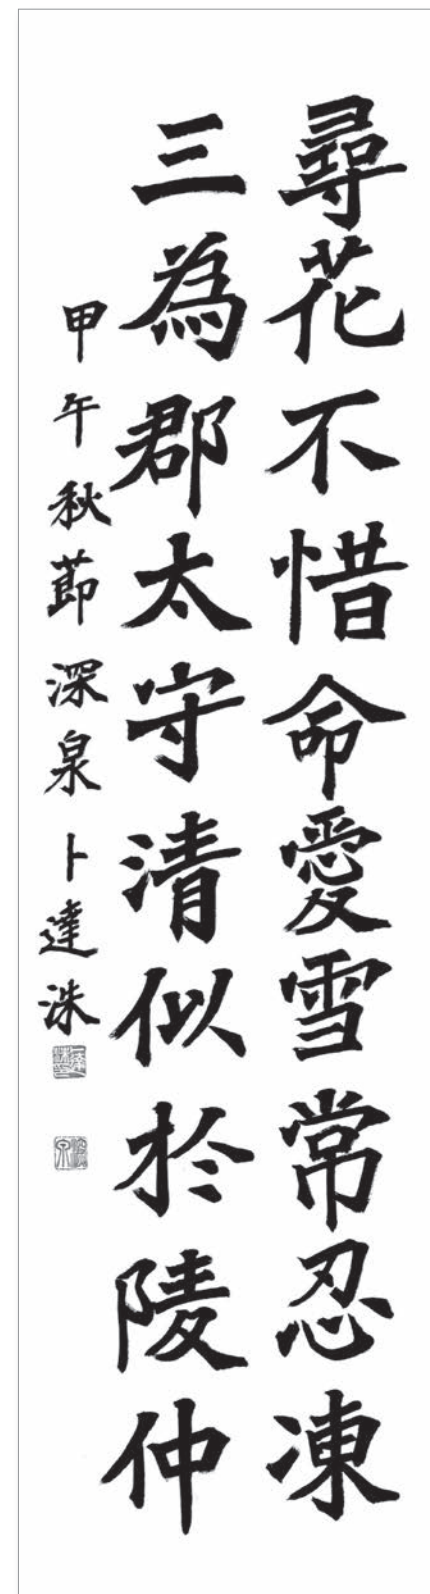 尋花不惜命愛雪常忍凍
三為郡太守清似於陵仲
甲午秋莭深泉卜達洙